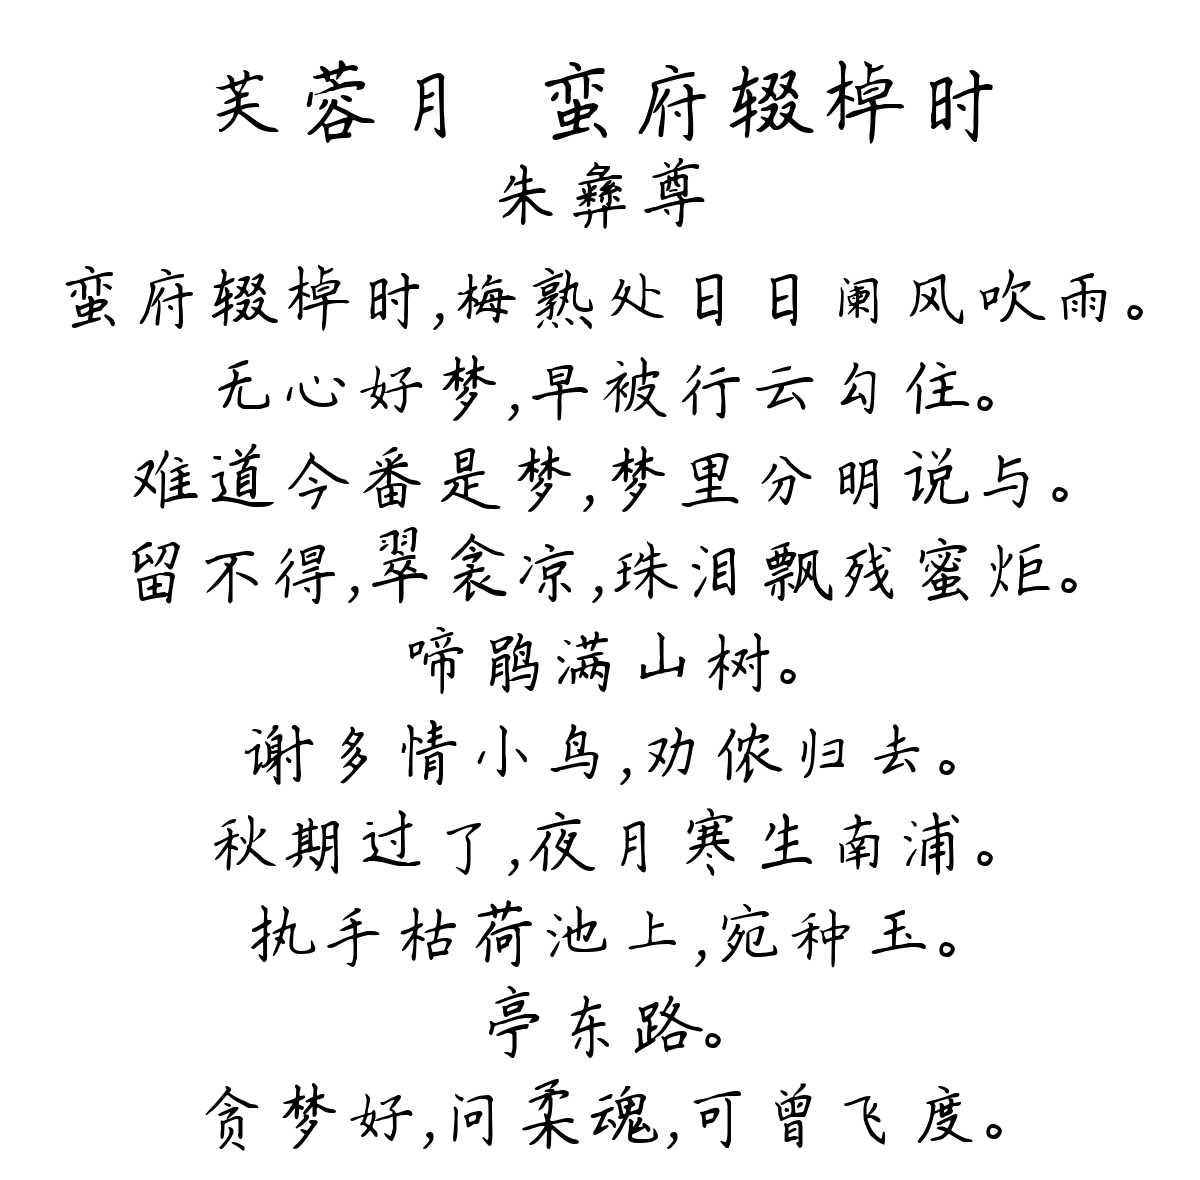 芙蓉月 蛮府辍棹时
朱彝尊
蛮府辍棹时,梅熟处日日阑风吹雨。
无心好梦,早被行云勾住。
难道今番是梦,梦里分明说与。
留不得,翠衾凉,珠泪飘残蜜炬。
啼鹃满山树。
谢多情小鸟,劝侬归去。
秋期过了,夜月寒生南浦。
执手枯荷池上,宛种玉。
亭东路。
贪梦好,问柔魂,可曾飞度。